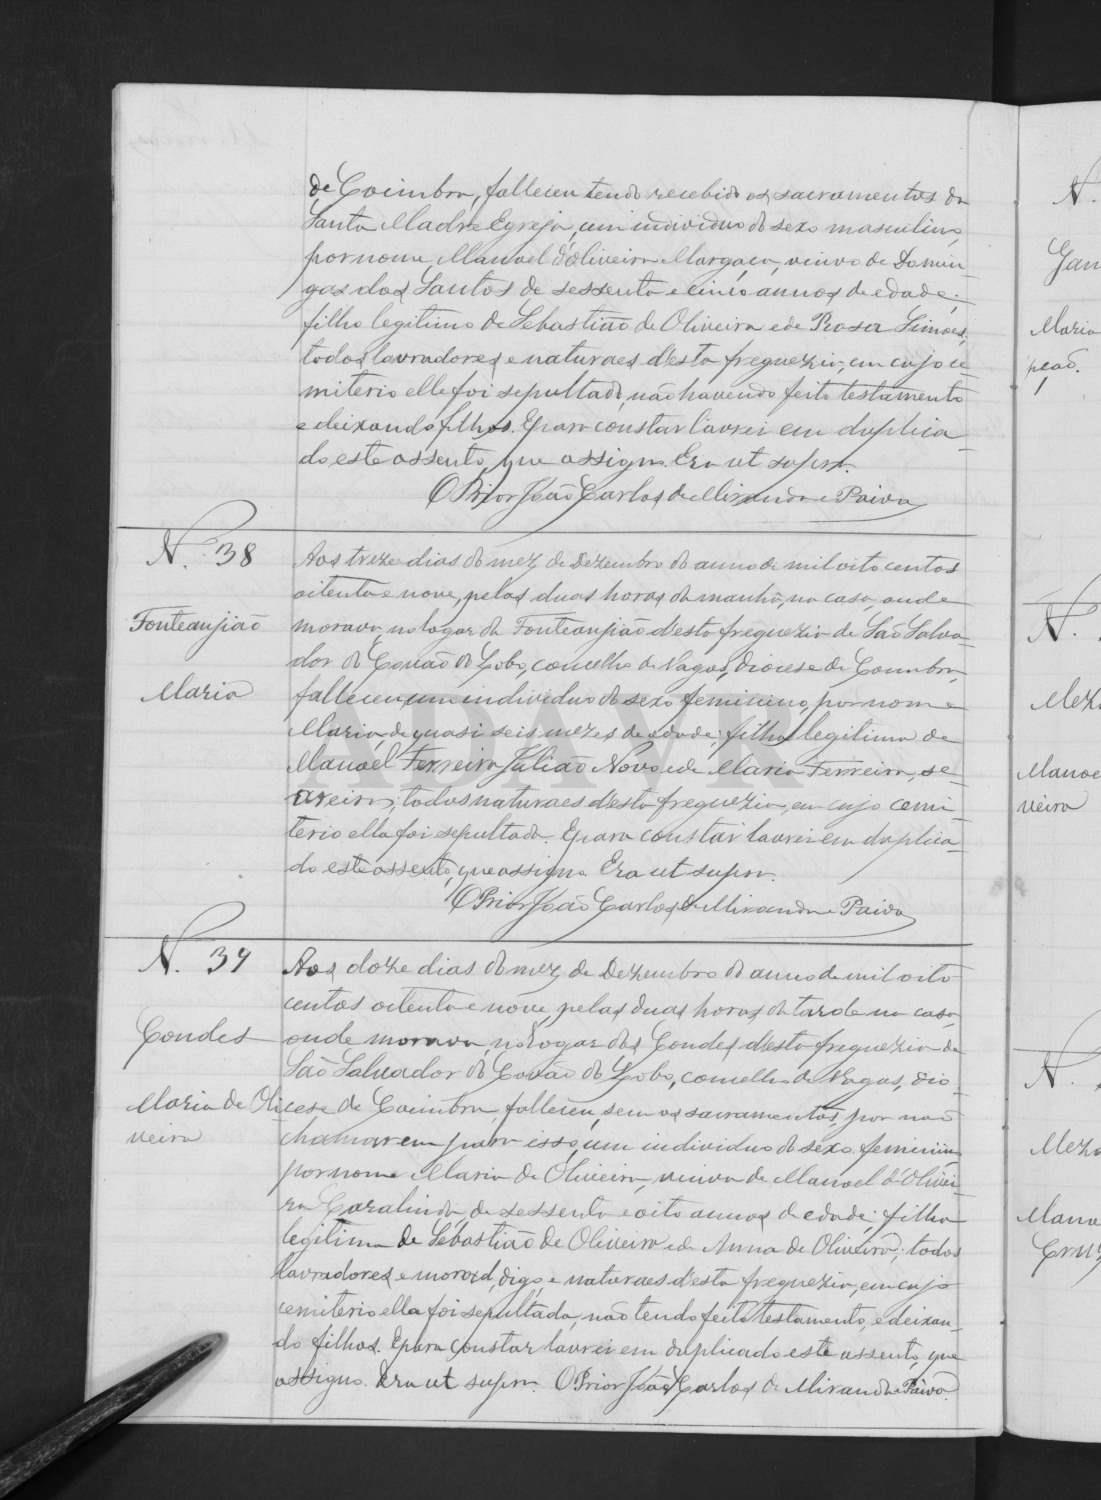 de Coimbra, falleceu tendo recebido os sacramentos da
Santa Madre Egreja, um individuo do sexo masculino,
por nome Manoel d'Oliveira Margaça, viuvo de Domin-
gas dos Santos de sessenta e cinco annos de edade;
filho legitimo de Sebastião de Oliveira e de Rosa Simões;
todos lavradores e naturaes d'esta freguezia, em cujo ce-
miterio elle foi sepultado, não havendo feito testamento
e deixando filhos. E para constar lavrei em duplica-
do este assento, que assigno. Era ut supra.
O Prior João Carlos de Miranda e Paiva
N. 38
Fonteanjião
Maria
Aos treze dias do mez de Dezembro do anno de mil oito centos
oitenta e nove, pelas duas horas da manhã, na casa, onde
morava, no logar da Fonteanjião d'esta freguezia de São Salva-
dor do Covão do Lobo, concelho de Vagos, diocese de Coimbra,
falleceu um individuo do sexo feminino, por nome
Maria, de quasi seis mezes de edade; filha legitima de
Manoel Ferreira Julião Novo e de Maria Ferreira, se-
areiros; todos naturaes d'esta freguezia, em cujo cemi-
terio ella foi sepultada. E para constar lavrei em duplica-
do este assento, que assigno. Era ut supra.
O Prior João Carlos de Miranda e Paiva
N. 39
Condes
Maria de Oli-
veira
Aos doze dias do mez de Dezembro do anno de mil oito
centos oitenta e nove, pelas duas horas da tarde na casa,
onde morava, no logar dos Condes d'esta freguezia de
São Salvador do Covão do Lobo, concelho de Vagos, dio-
cese de Coimbra, falleceu, sem os sacramentos, por não
chamarem para isso, um individuo do sexo feminino
por nome Maria de Oliveira, viuva de Manoel d'Olivei-
ra Caralinda, de sessenta e oito annos de edade; filha
legitima de Sebastião de Oliveira e de Anna de Oliveira; todos
lavradores e morad, digo, e naturaes d'esta freguezia, em cujo
cemiterio ella foi sepultada, não tendo feito testamento, e deixan-
do filhos. E para constar lavrei em duplicado este assento, que
assigno. Era ut supra. O Prior João Carlos de Miranda e Paiva.
ADAVR
N.
Maria
N.
Manoe
veira
N.